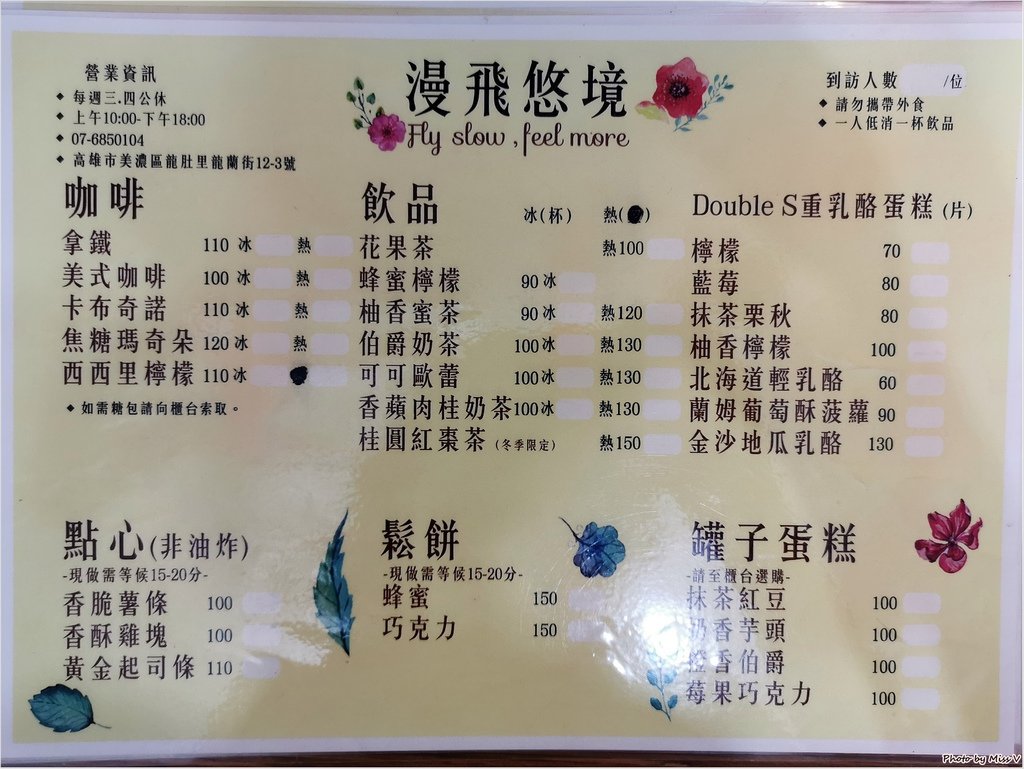 營業資訊
◆ 每週三.四公休
◆ 上午10:00-下午18:00
◆ 07-6850104
◆ 高雄市美濃區龍肚里龍蘭街12-3號
漫飛悠境
Fly slow , feel more
到訪人數 /位
◆ 請勿攜帶外食
◆ 一人低消一杯飲品
咖啡
拿鐵 110 冰 熱
美式咖啡 100 冰 熱
卡布奇諾 110 冰 熱
焦糖瑪奇朵 120 冰 熱
西西里檸檬 110 冰
◆ 如需糖包請向櫃台索取。
飲品 冰(杯) 熱( )
花果茶 熱100
蜂蜜檸檬 90 冰
柚香蜜茶 90 冰 熱120
伯爵奶茶 100 冰 熱130
可可歐蕾 100 冰 熱130
香蘋肉桂奶茶 100 冰 熱130
桂圓紅棗茶 (冬季限定) 熱150
Double S重乳酪蛋糕 (片)
檸檬 70
藍莓 80
抹茶栗秋 80
柚香檸檬 100
北海道輕乳酪 60
蘭姆葡萄酥菠蘿 90
金沙地瓜乳酪 130
點心(非油炸)
-現做需等候15-20分-
香脆薯條 100
香酥雞塊 100
黃金起司條 110
鬆餅
-現做需等候15-20分-
蜂蜜 150
巧克力 150
罐子蛋糕
-請至櫃台選購-
抹茶紅豆 100
奶香芋頭 100
橙香伯爵 100
莓果巧克力 100
Photo by Miss V